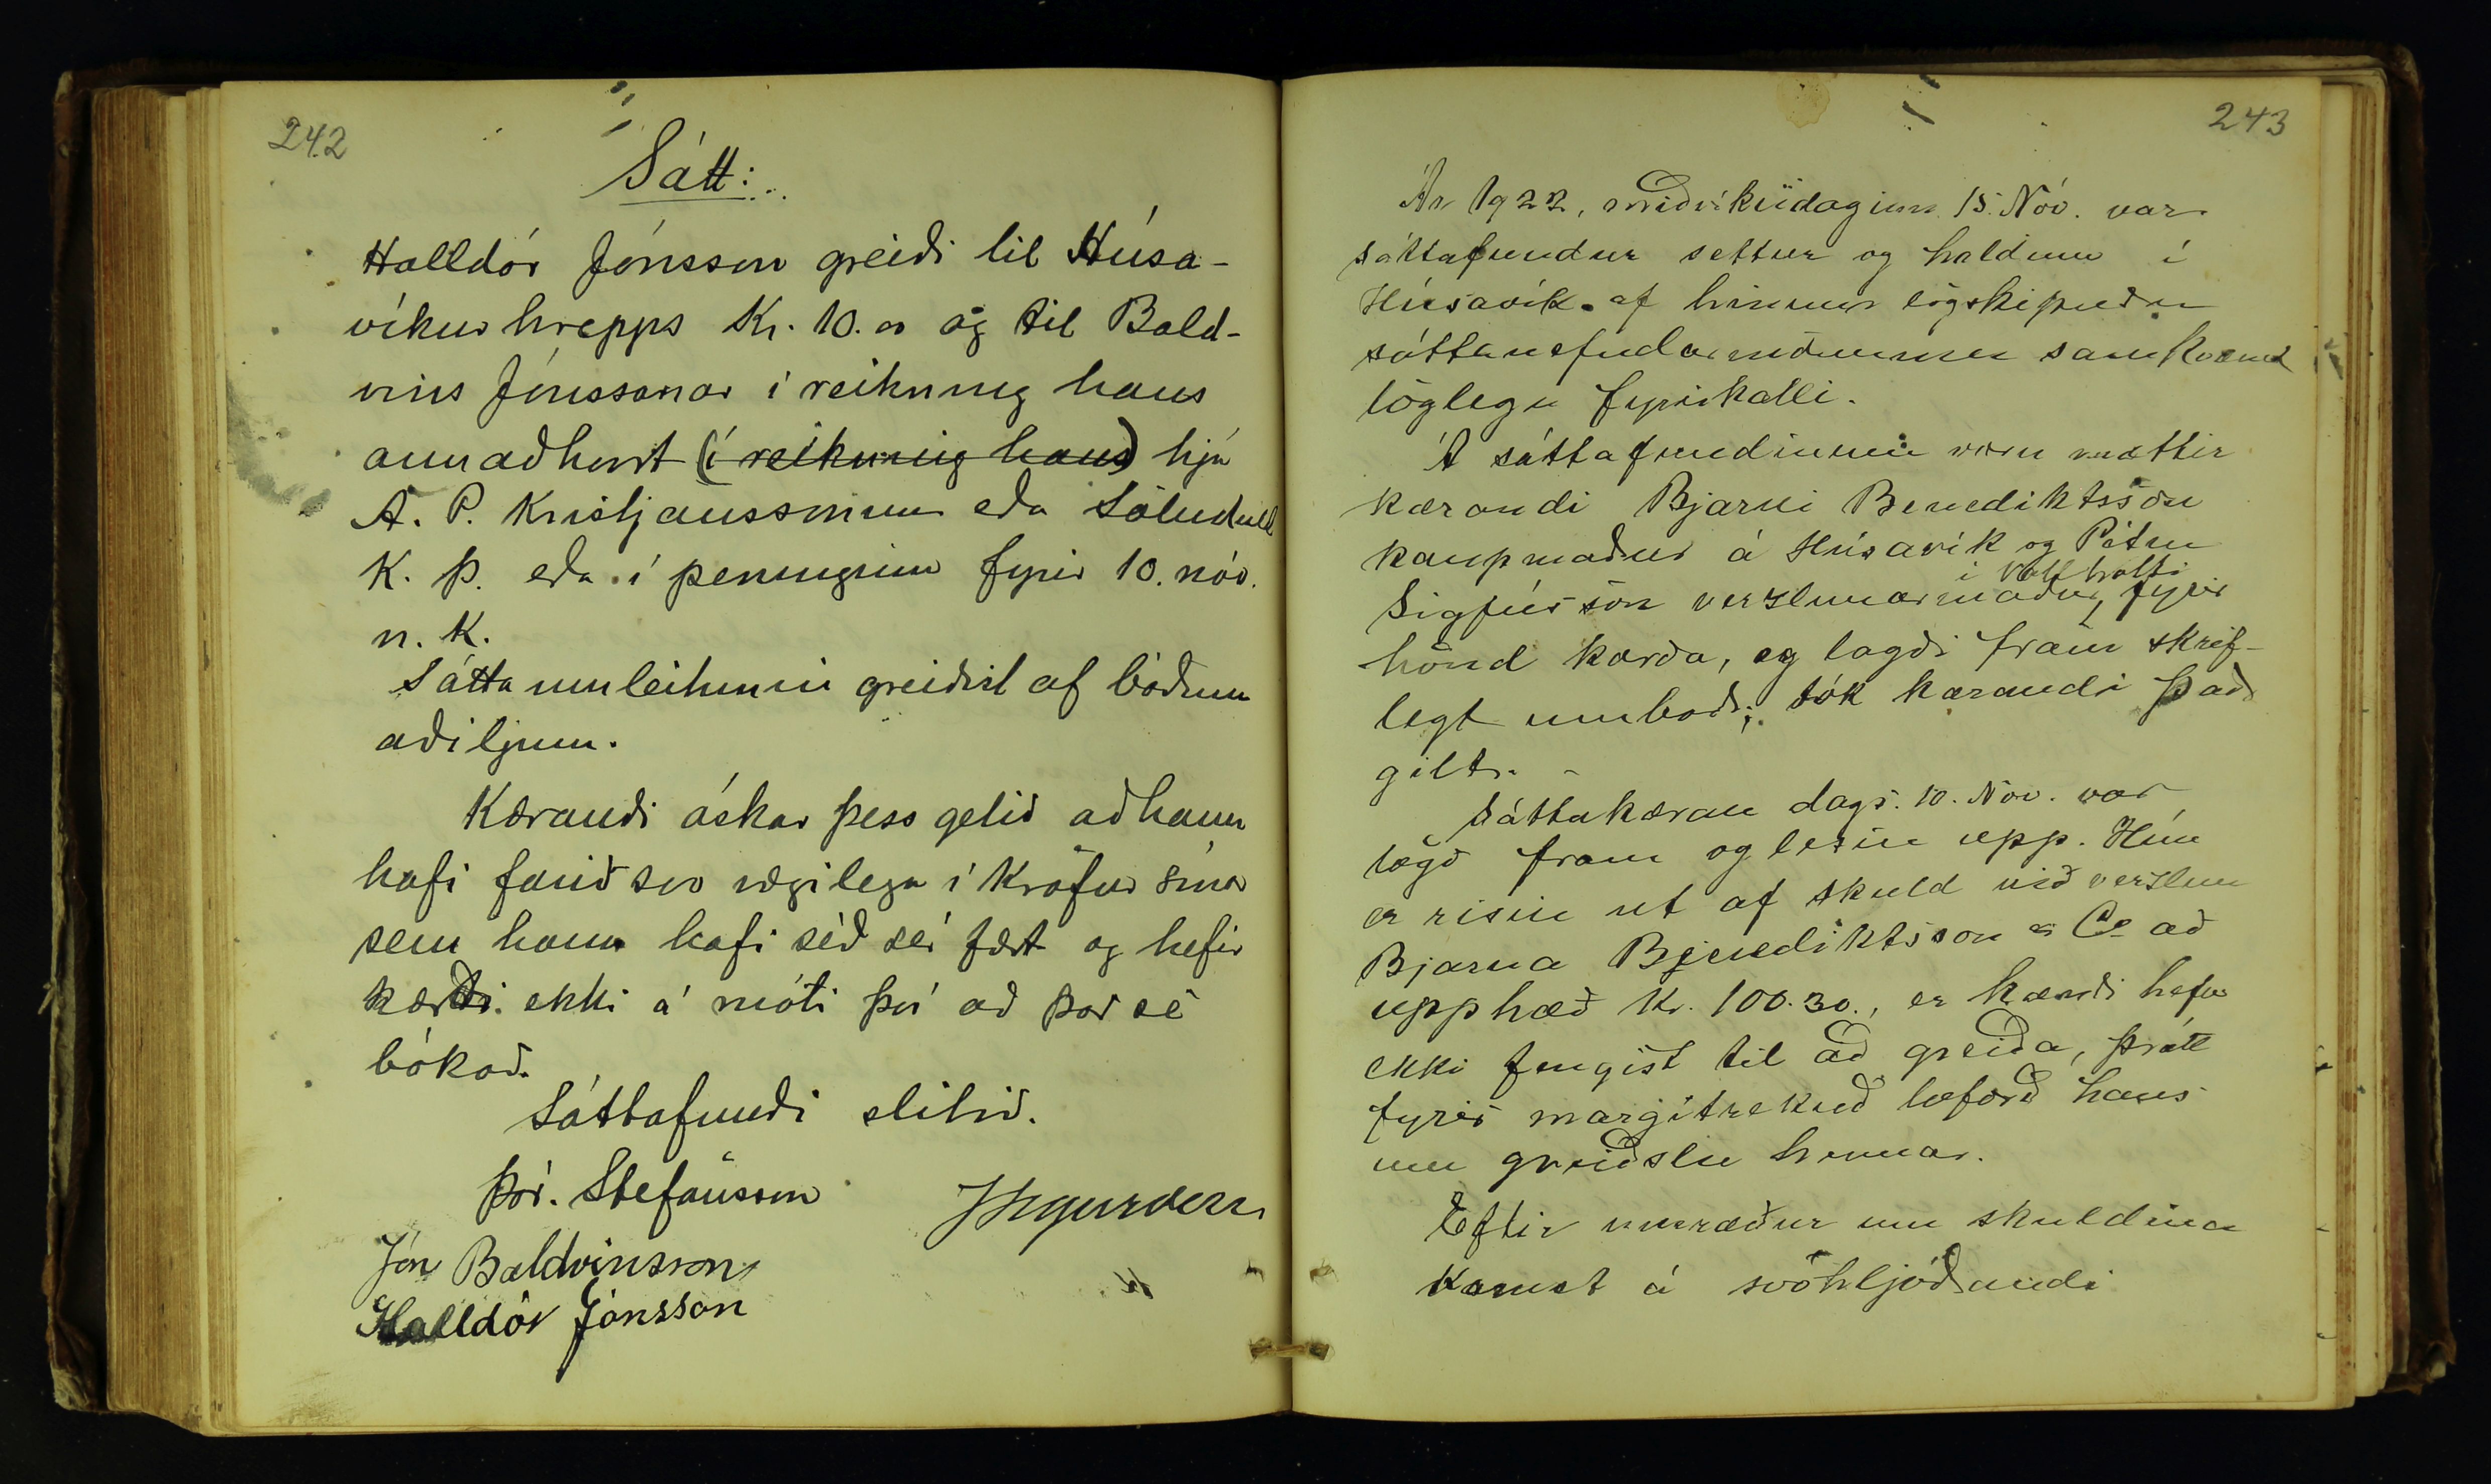 242
Sátt:
Halldór Jónsson greiði til Húsa-
víkurhrepps Kr. 10.00 og til Bald-
vins Jónssonar í reikning hans
annaðhvort (í reikning hans) hjá
A. P. Kristjánssyni eða Söludeild
K. Þ. eða í peningum fyrir 10. nóv.
n. k.
Sáttaumleitunin greiðist af báðum
aðiljum.
Kærandi óskar þess getið að hann
hafi farið svo vægilega í kröfur sínar
sem hann hafi séð sér fært og hefir
kærði ekki á móti því að það sé
bókað.
Sáttafundi slitið.
Þór. Stefánsson
Jón Baldvinsson
Halldór Jónsson
243
Ár 1922, miðvikudaginn 15. Nóv. var
sáttafundur settur og haldinn í
Húsavík af hinum lögskipuðu
sáttanefndarmönnum samkvæmt
löglegu fyrirkalli.
Á sáttafundinum voru mættir
kærandi Bjarni Benediktsson
kaupmaður á Húsavík og Pétur
Sigfússon verzlunarmaður í Vallholti, fyrir
hönd kærða, og lagði fram skrif-
legt umboð; tók kærandi það
gilt. -
Sáttakæran dags. 10. Nóv. var
lögð fram og lesin upp. Hún
er risin út af skuld við verzlun
Bjarna Benediktsson & Co að
upphæð Kr. 100.30., er kærði hefur
ekki fengist til að greiða, þrátt
fyrir margítrekuð loforð hans
um greiðslu hennar.
Eftir umræður um skuldina
komst á svohljóðandi